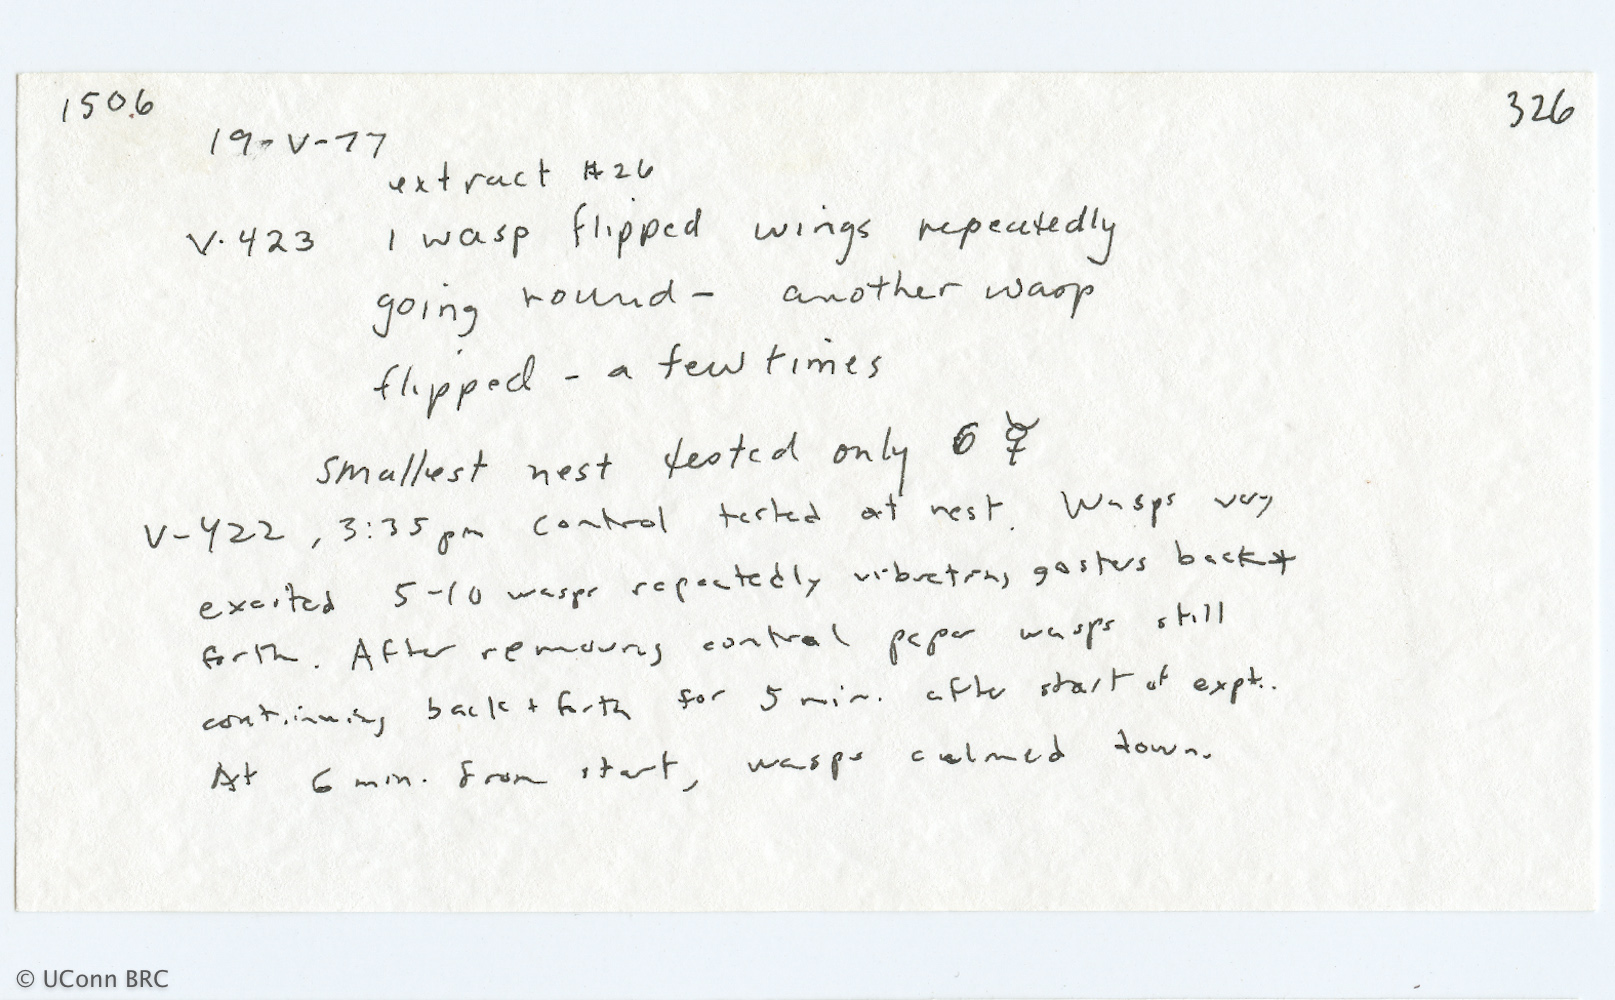 1506
326
19-V-77
extract #26
V-423 1 wasp flipped wings repeatedly
going round - another wasp
flipped - a few times
smallest nest tested only 6 ☿
V-422, 3:35 pm control tested at nest. Wasps very
excited 5-10 wasps repeatedly vibrating gasters back +
forth. After removing control paper wasps still
continuing back + forth for 5 min. after start of expt.
At 6 min. from start, wasps calmed down.
© UConn BRC